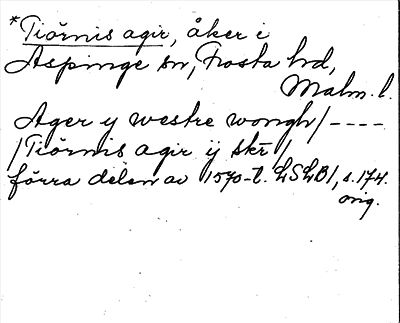 *Tiörnis agir, åker i
Aspinge sn, Frosta hd,
Malm. l.
Ager y westre wongh/----
/Tiörnis agir ij skr̄/
förra delen av 1570-t. LSLB1, s. 174.
orig.